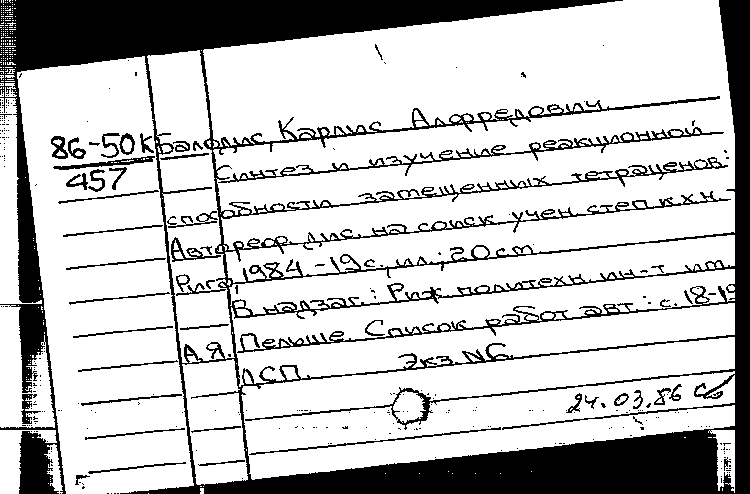 86-50К Балодис, Карлис Алфредович.
457 Синтез и изучение реакционной
способности замещенных тетраценов:
Автореф. дис. на соиск. учен. степ. к.х.н. -
Рига, 1984. - 19 с., ил.; 20 см.
В надзаг.: Риж. политехн. ин-т им.
А.Я. Пельше. Список работ авт.: с. 18-19
ДСП. Экз. № 6.
24.03.86